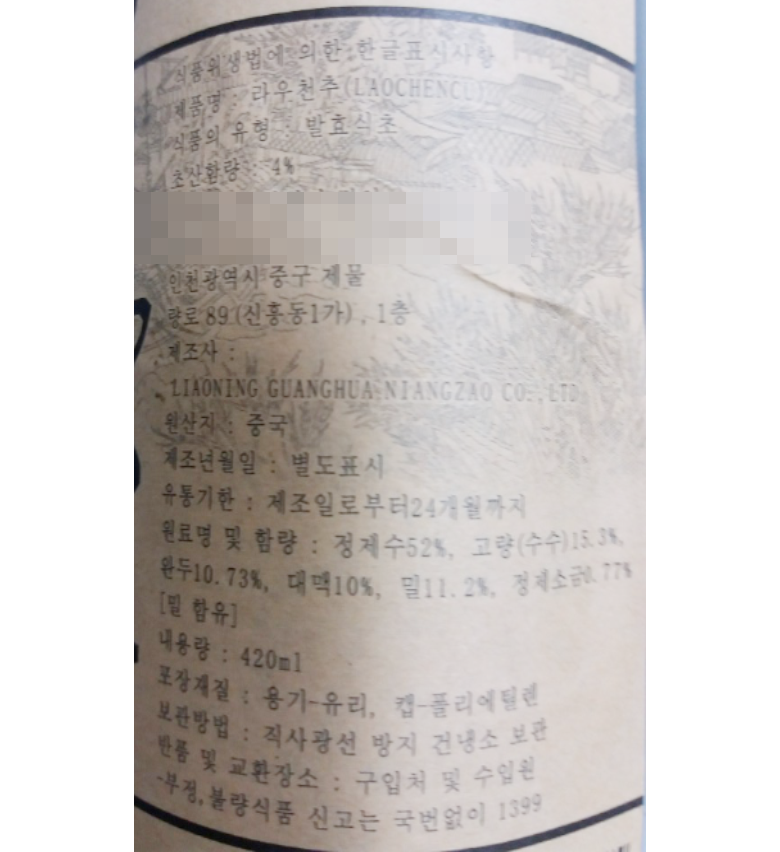 식품위생법에 의한 한글표식사항
제품명 : 라우천추(LAOCHENCU)
식품의 유형 : 발효식초
초산함량 : 4%
인천광역시 중구 제물
량로 89 (신흥동1가) , 1층
제조사 :
LIAONING GUANGHUA NIANGZAO CO.,LTD
원산지 : 중국
제조년월일 : 별도표시
유통기한 : 제조일로부터24개월까지
원료명 및 함량 : 정제수52%, 고량(수수)15.3%,
완두10.73%, 대맥10%, 밀11.2%, 정제소금0.77%
[밀 함유]
내용량 : 420ml
포장재질 : 용기-유리, 캡-폴리에틸렌
보관방법 : 직사광선 방지 건냉소 보관
반품 및 교환장소 : 구입처 및 수입원
-부정,불량식품 신고는 국번없이 1399